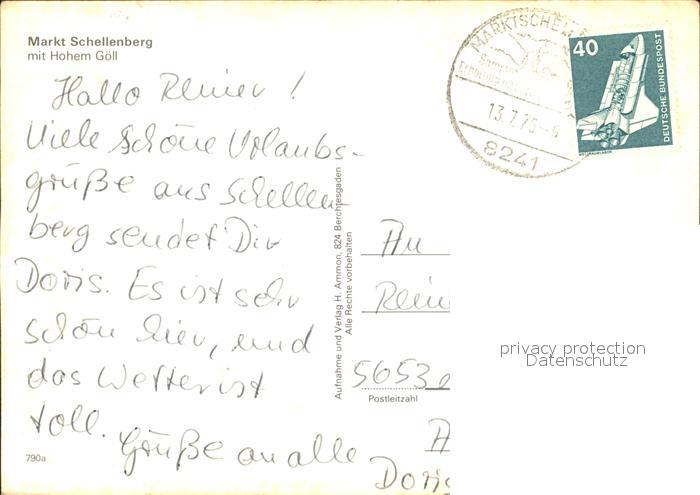 Markt Schellenberg
mit Hohem Göll
Hallo Reiner!
Viele schöne Urlaubs-
grüße aus Schellen-
berg sendet Dir
Doris. Es ist sehr
schön hier, und
das Wetter ist
toll.
Grüße an alle
790a
Aufnahme und Verlag H. Ammon, 824 Berchtesgaden
Alle Rechte vorbehalten
MARKTSCHELL
13.7.76
8241
40
DEUTSCHE BUNDESPOST
WELTRAUMLABOR
An
Rein
5653
Postleitzahl
Doris
privacy protection
Datenschutz